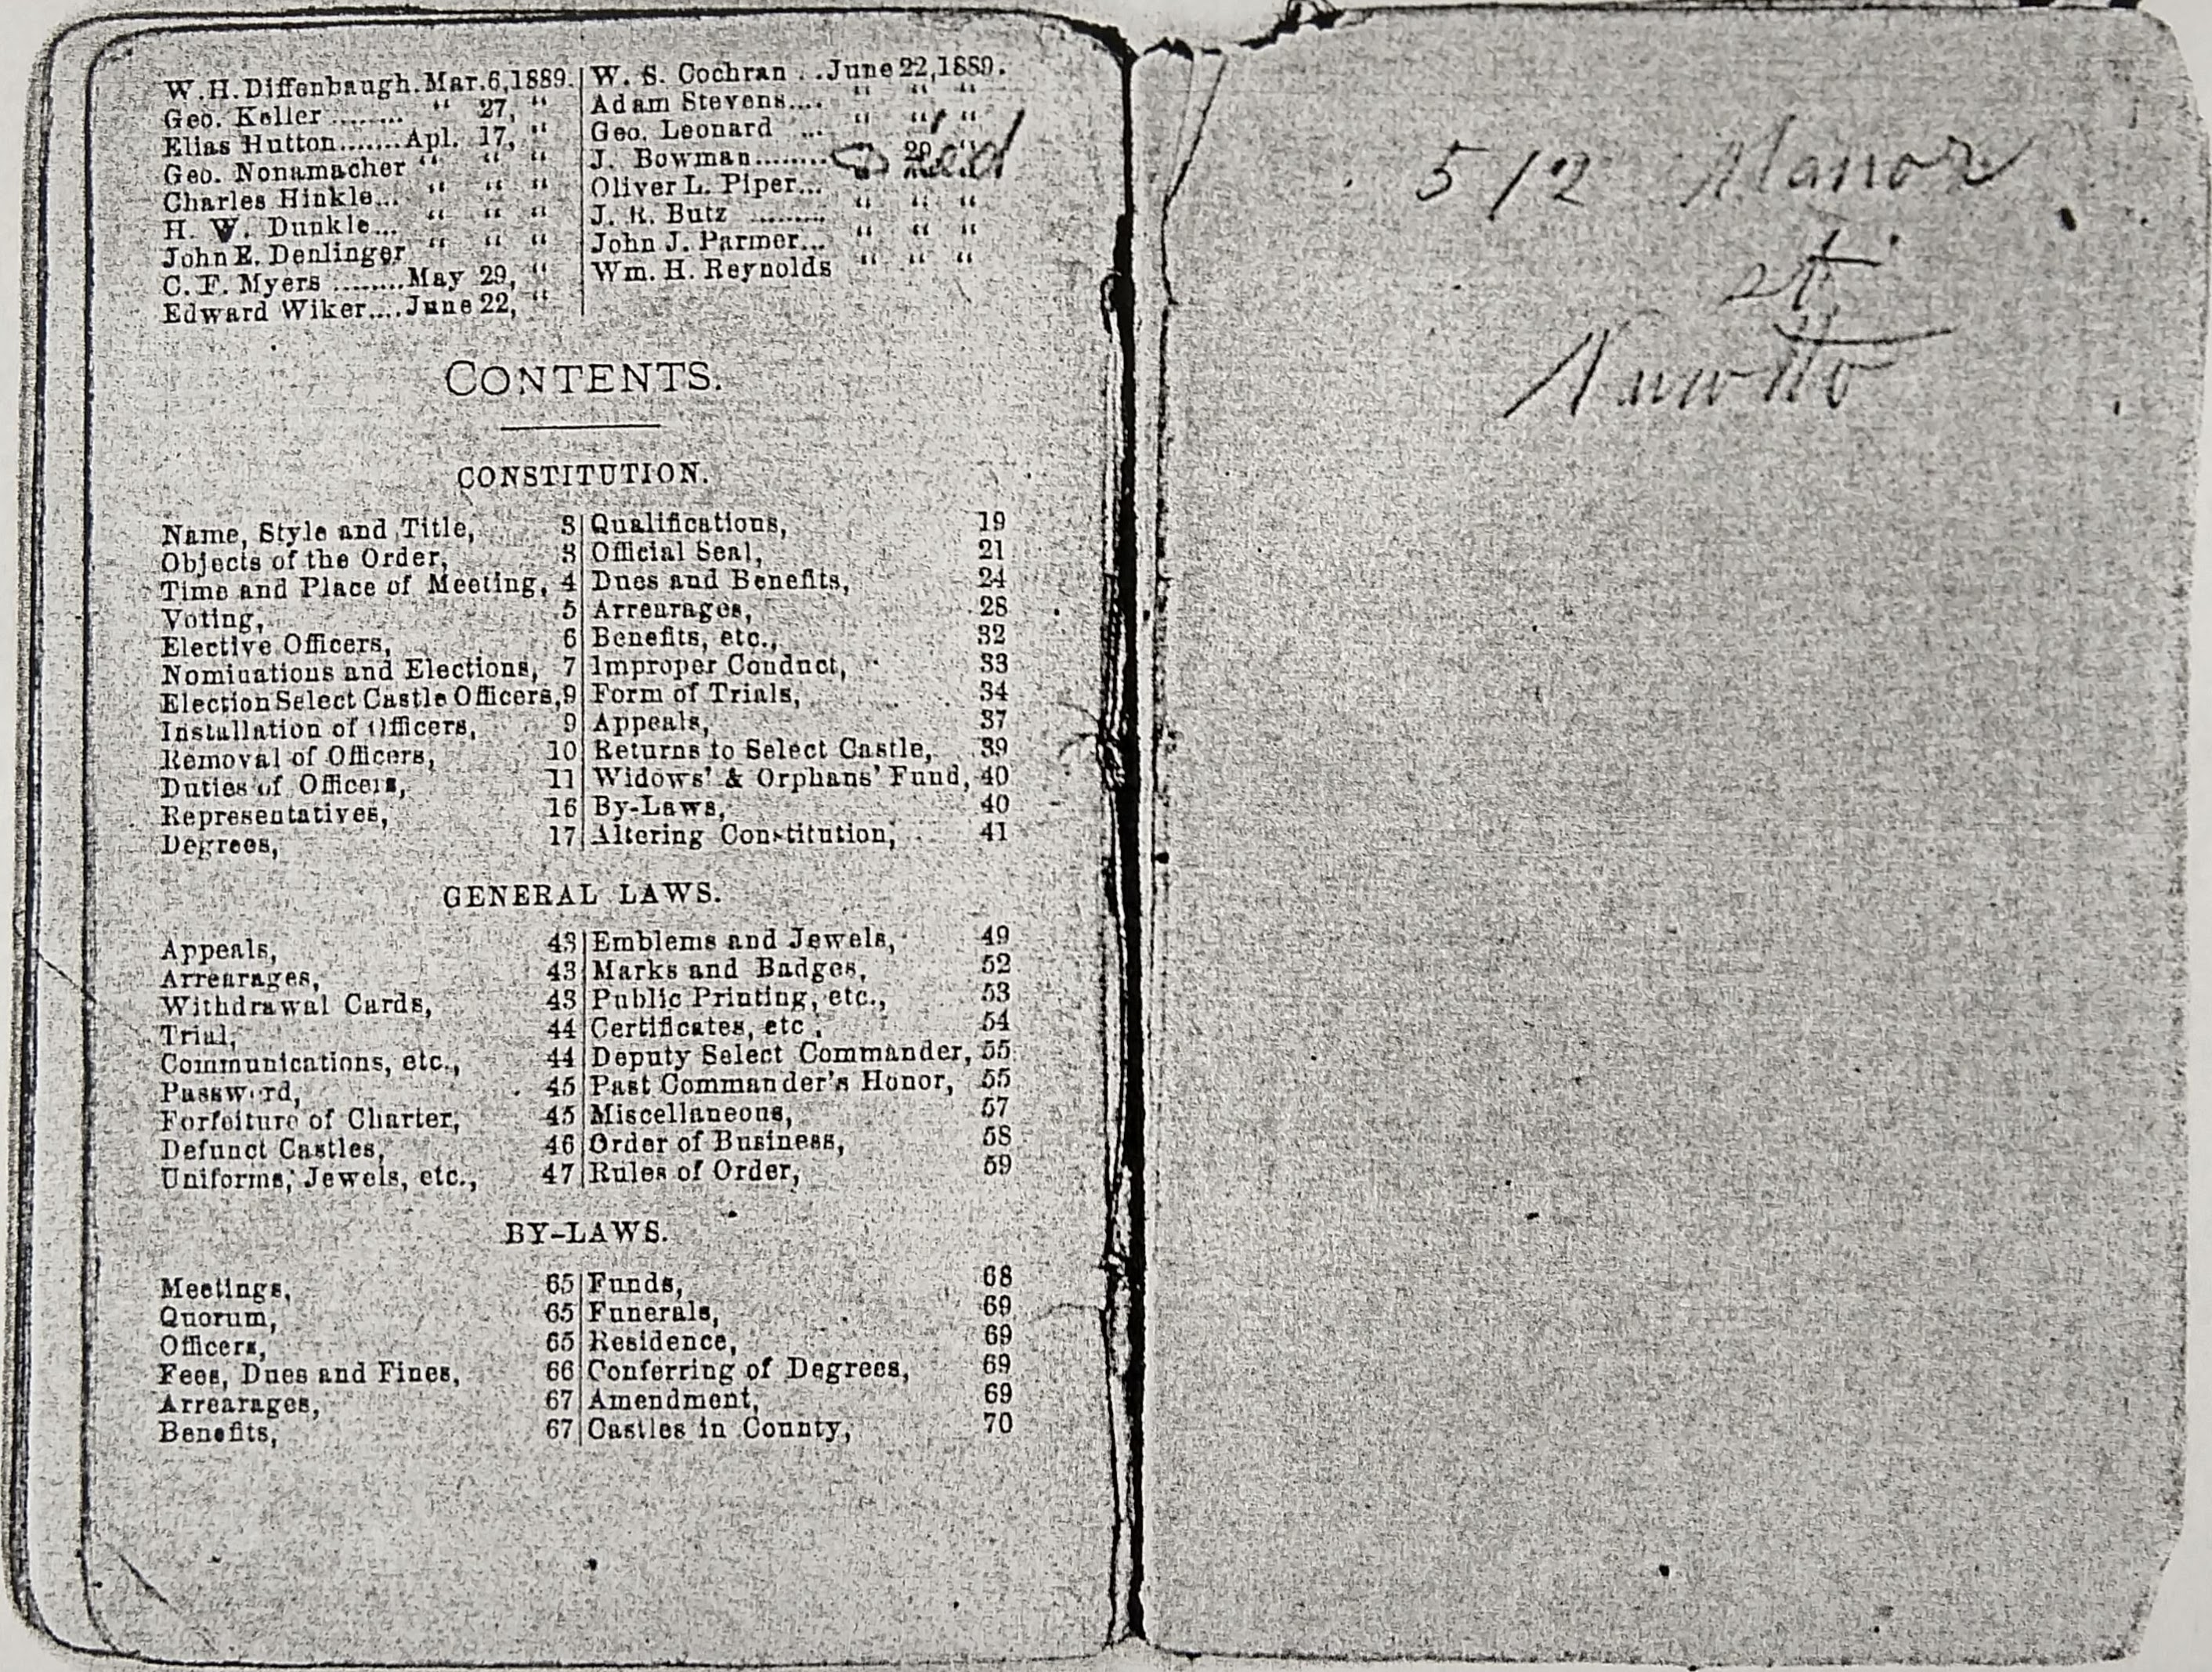 W.H.Diffenbaugh.Mar.6,1889.
Geo. Keller ........ “ 27, “
Elias Hutton.......Apl. 17, “
Geo. Nonamacher “ “ “
Charles Hinkle... “ “ “
H. W. Dunkle... “ “ “
John E. Denlinger “ “ “
C. F. Myers ........May 29, “
Edward Wiker....June 22, “
W. S. Cochran ..June 22,1889.
Adam Stevens.... “ “ “
Geo. Leonard ... “ “ “
J. Bowman........ 29 “
Oliver L. Piper...
J. R. Butz ......... “ “ “
John J. Parmer... “ “ “
Wm. H. Reynolds “ “ “
CONTENTS.
CONSTITUTION.
Name, Style and Title, 3
Objects of the Order, 3
Time and Place of Meeting, 4
Voting, 5
Elective Officers, 6
Nominations and Elections, 7
Election Select Castle Officers, 9
Installation of Officers, 9
Removal of Officers, 10
Duties of Officers, 11
Representatives, 16
Degrees, 17
Qualifications, 19
Official Seal, 21
Dues and Benefits, 24
Arrearages, 28
Benefits, etc., 32
Improper Conduct, 33
Form of Trials, 34
Appeals, 37
Returns to Select Castle, 39
Widows' & Orphans' Fund, 40
By-Laws, 40
Altering Constitution, 41
GENERAL LAWS.
Appeals, 43
Arrearages, 43
Withdrawal Cards, 43
Trial, 44
Communications, etc., 44
Password, 45
Forfeiture of Charter, 45
Defunct Castles, 46
Uniforms, Jewels, etc., 47
Emblems and Jewels, 49
Marks and Badges, 52
Public Printing, etc., 53
Certificates, etc., 54
Deputy Select Commander, 55
Past Commander's Honor, 55
Miscellaneous, 57
Order of Business, 58
Rules of Order, 59
BY-LAWS.
Meetings, 65
Quorum, 65
Officers, 65
Fees, Dues and Fines, 66
Arrearages, 67
Benefits, 67
Funds, 68
Funerals, 69
Residence, 69
Conferring of Degrees, 69
Amendment, 69
Castles in County, 70
512 Manor
st.